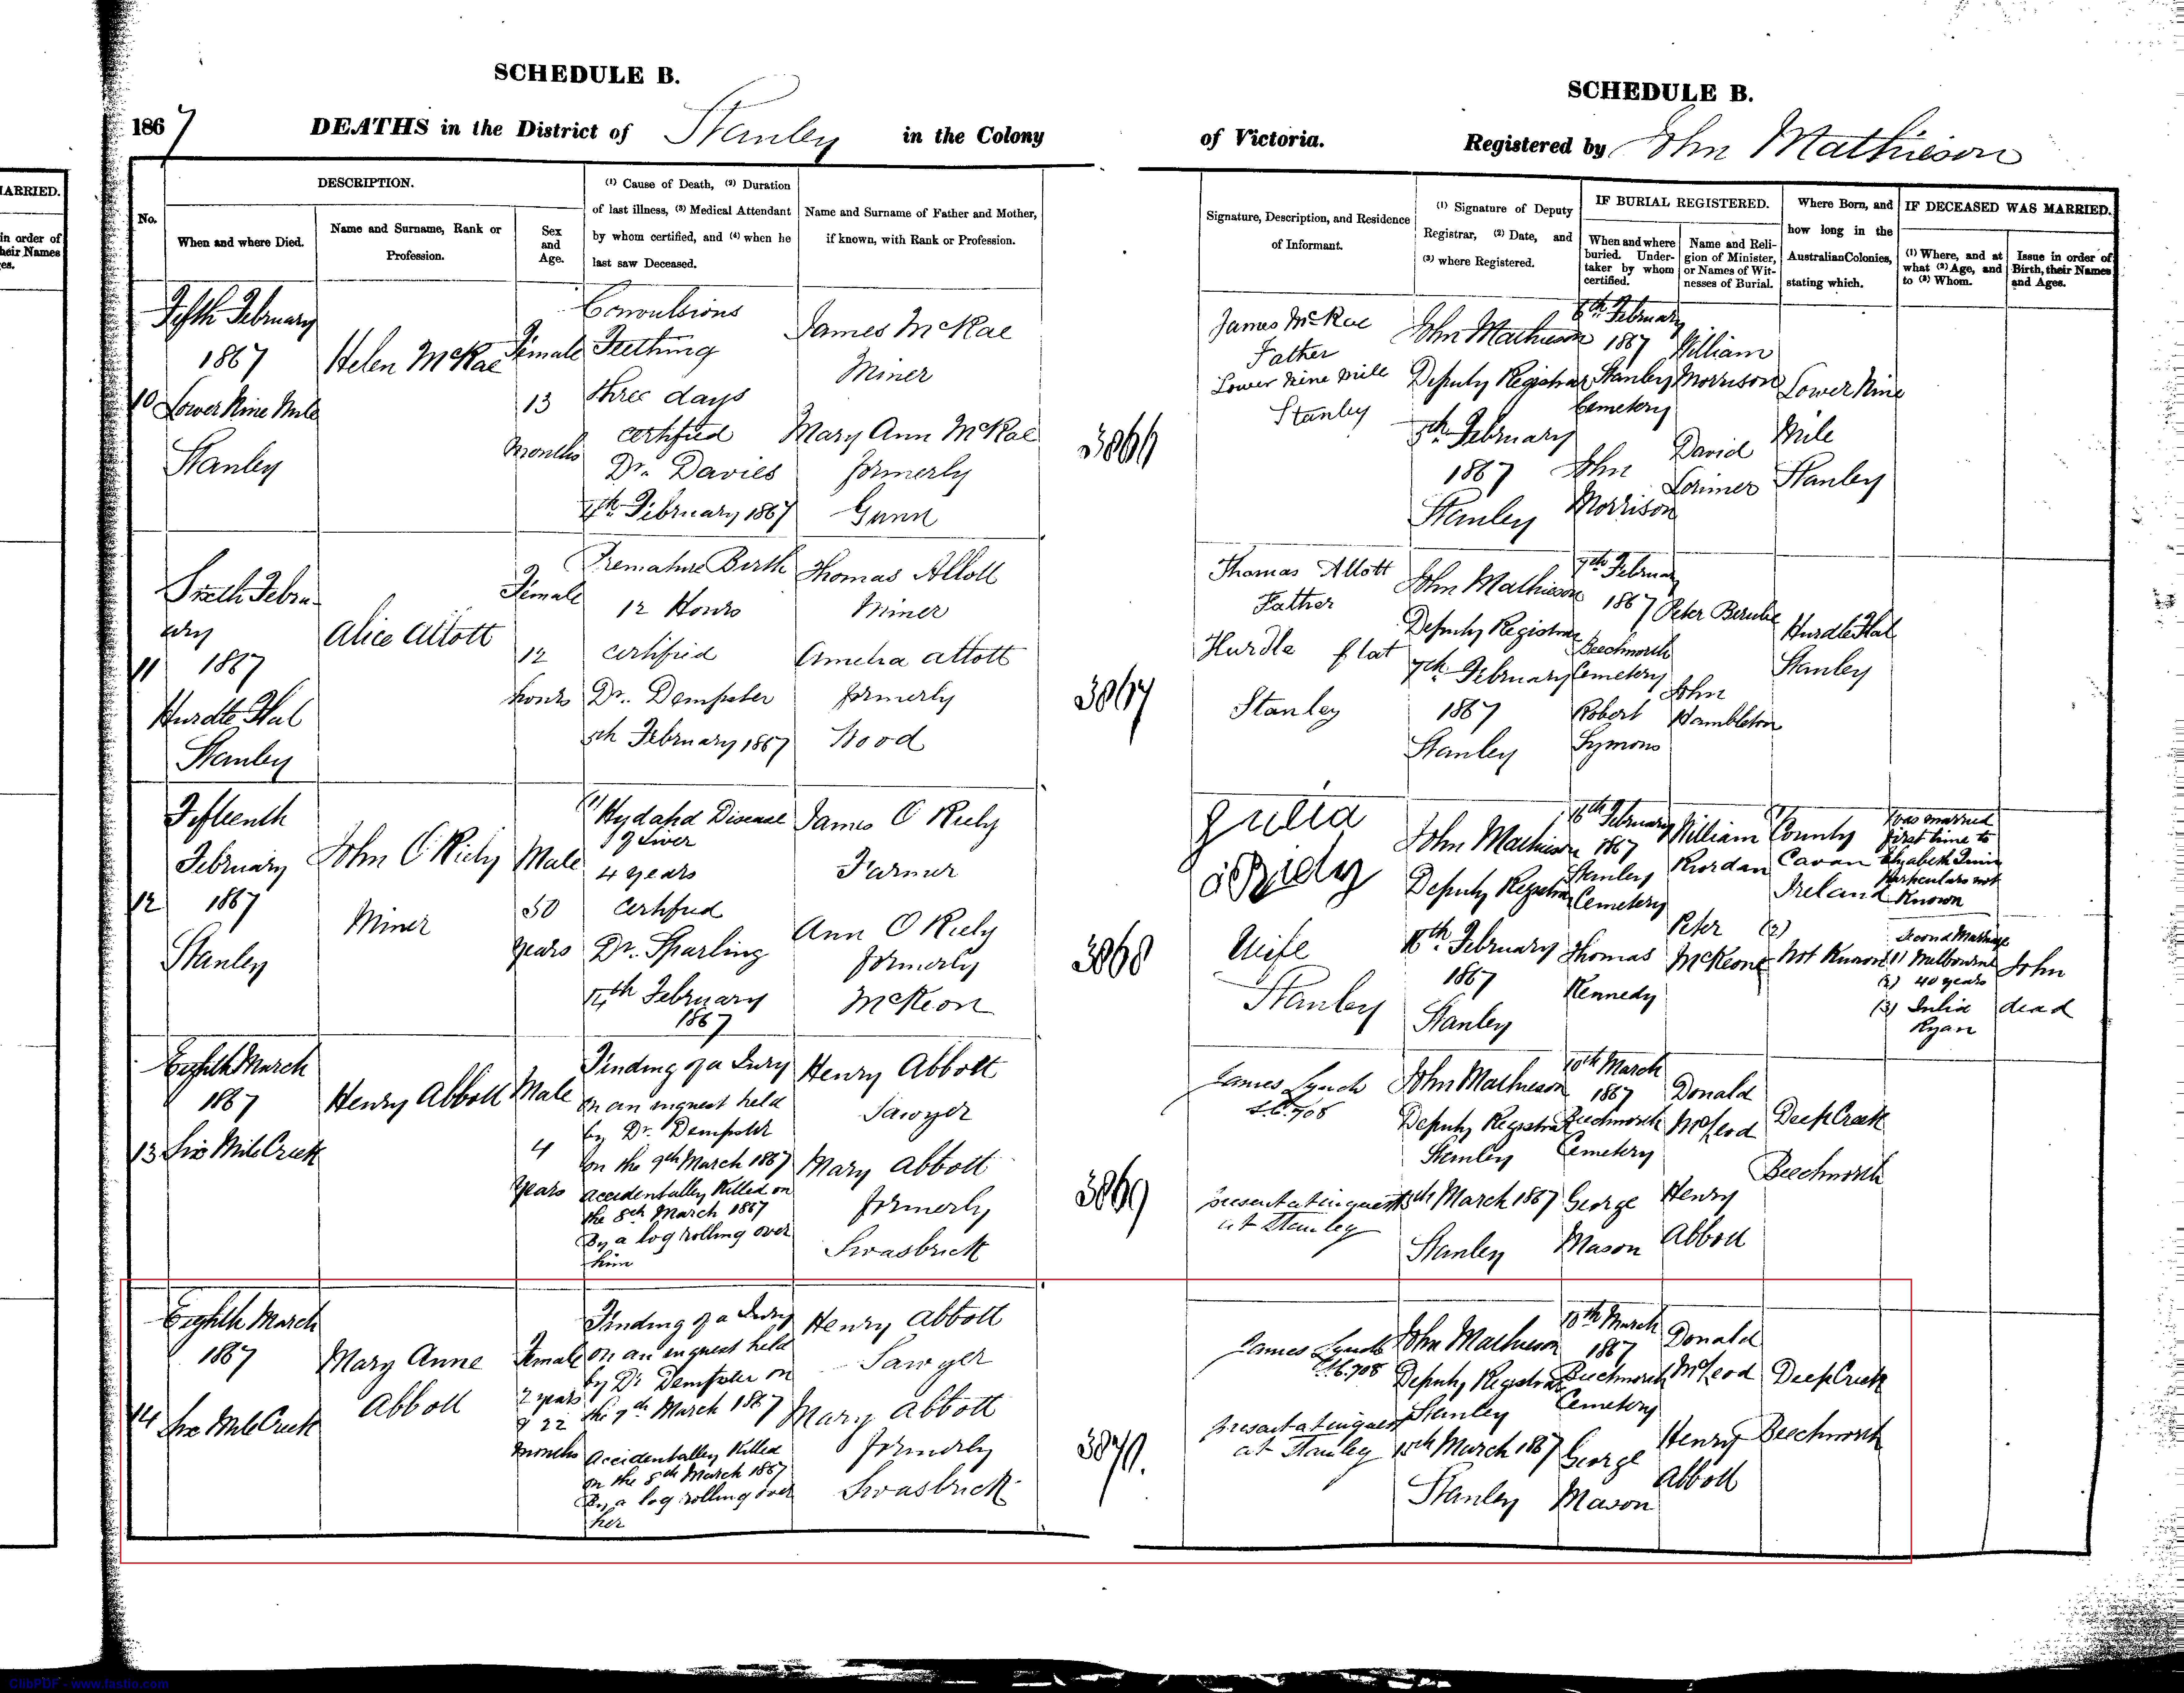 SCHEDULE B.
1867 DEATHS in the District of Stanley in the Colony
MARRIED.
in order of
their Names
es.
No.
DESCRIPTION.
When and where Died.
Name and Surname, Rank or
Profession.
Sex
and
Age.
(1) Cause of Death, (2) Duration
of last illness, (3) Medical Attendant
by whom certified, and (4) when he
last saw Deceased.
Name and Surname of Father and Mother,
if known, with Rank or Profession.
10
Fifth February
1867
Lower Nine Mile
Stanley
Helen McRae
Female
13
Months
Convulsions
Teething
three days
certified
Dr. Davies
4th February 1867
James McRae
Miner
Mary Ann McRae
formerly
Gunn
3866
11
Sixth Febru-
ary
1867
Hurdle Flat
Stanley
Alice Allott
Female
12
hours
Premature Birth
12 Hours
certified
Dr. Dempster
5th February 1867
Thomas Allott
Miner
Amelia Allott
formerly
Wood
3867
12
Fifteenth
February
1867
Stanley
John O Riely
Miner
Male
50
years
(1) Hydatid Disease
of Liver
4 years
Certified
Dr. Sparling
14th February
1867
James O Riely
Farmer
Ann O Riely
formerly
McKeon
3868
13
Eighth March
1867
Six Mile Creek
Henry Abbott
Male
4
years
Finding of a Jury
on an inquest held
by Dr. Dempster
on the 9th March 1867
accidentally Killed on
the 8th March 1867
By a log rolling over
him
Henry Abbott
Sawyer
Mary Abbott
formerly
Swasbrick
3869
14
Eighth March
1867
Six Mile Creek
Mary Anne
Abbott
Female
2 years
& 22
months
Finding of a Jury
on an inquest held
by Dr Dempster on
the 9th March 1867
accidentally Killed
on the 8th March 1867
By a log rolling over
her
Henry Abbott
Sawyer
Mary Abbott
formerly
Swasbrick
3870.
SCHEDULE B.
of Victoria. Registered by John Mathieson
Signature, Description, and Residence
of Informant.
(1) Signature of Deputy
Registrar, (2) Date, and
(3) where Registered.
IF BURIAL REGISTERED.
When and where
buried. Under-
taker by whom
certified.
Name and Reli-
gion of Minister,
or Names of Wit-
nesses of Burial.
Where Born, and
how long in the
Australian Colonies,
stating which.
IF DECEASED WAS MARRIED.
(1) Where, and at
what (2) Age, and
to (3) Whom.
Issue in order of
Birth, their Names
and Ages.
James McRae
Father
Lower Nine Mile
Stanley
John Mathieson
Deputy Registrar
5th February
1867
Stanley
6th February
1867
Stanley
Cemetery
John
Morrison
William
Morrison
David
Lorimer
Lower Nine
Mile
Stanley
Thomas Allott
Father
Hurdle flat
Stanley
John Mathieson
Deputy Registrar
7th February
1867
Stanley
7th February
1867
Beechworth
Cemetery
Robert
Symons
Peter
John
Hambleton
Hurdle Flat
Stanley
Julia
O'Riely
Wife
Stanley
John Mathieson
Deputy Registrar
16th February
1867
Stanley
16th February
1867
Stanley
Cemetery
Thomas
Kennedy
William
Riordan
Peter
McKeone
County
Cavan
Ireland
(2)
Not Known
Was married
first time to
Elizabeth
Particulars not
Known
Second Marriage
(1) Melbourne
(2) 40 years
(3) Julia
Ryan
John
dead
James Lynch
S.C. 708
present at inquest
at Stanley
John Mathieson
Deputy Registrar
Stanley
March 1867
Stanley
10th March
1867
Beechworth
Cemetery
George
Mason
Donald
McLeod
Henry
Abbott
Deep Creek
Beechworth
James Lynch
S.C. 708
present at inquest
at Stanley
John Mathieson
Deputy Registrar
Stanley
15th March 1867
Stanley
10th March
1867
Beechworth
Cemetery
George
Mason
Donald
McLeod
Henry
Abbott
Deep Creek
Beechworth
GlibPDF - www.fastio.com